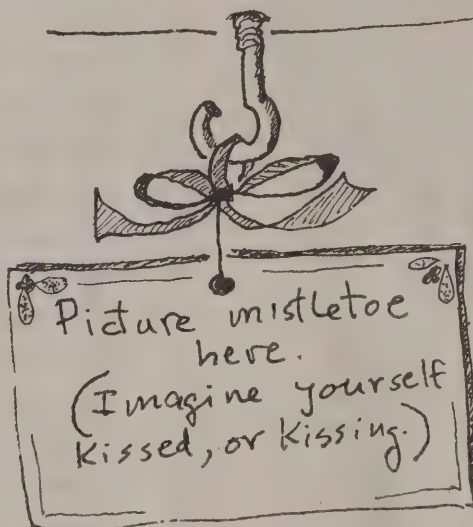 Picture mistletoe
here.
(Imagine yourself
kissed, or kissing.)